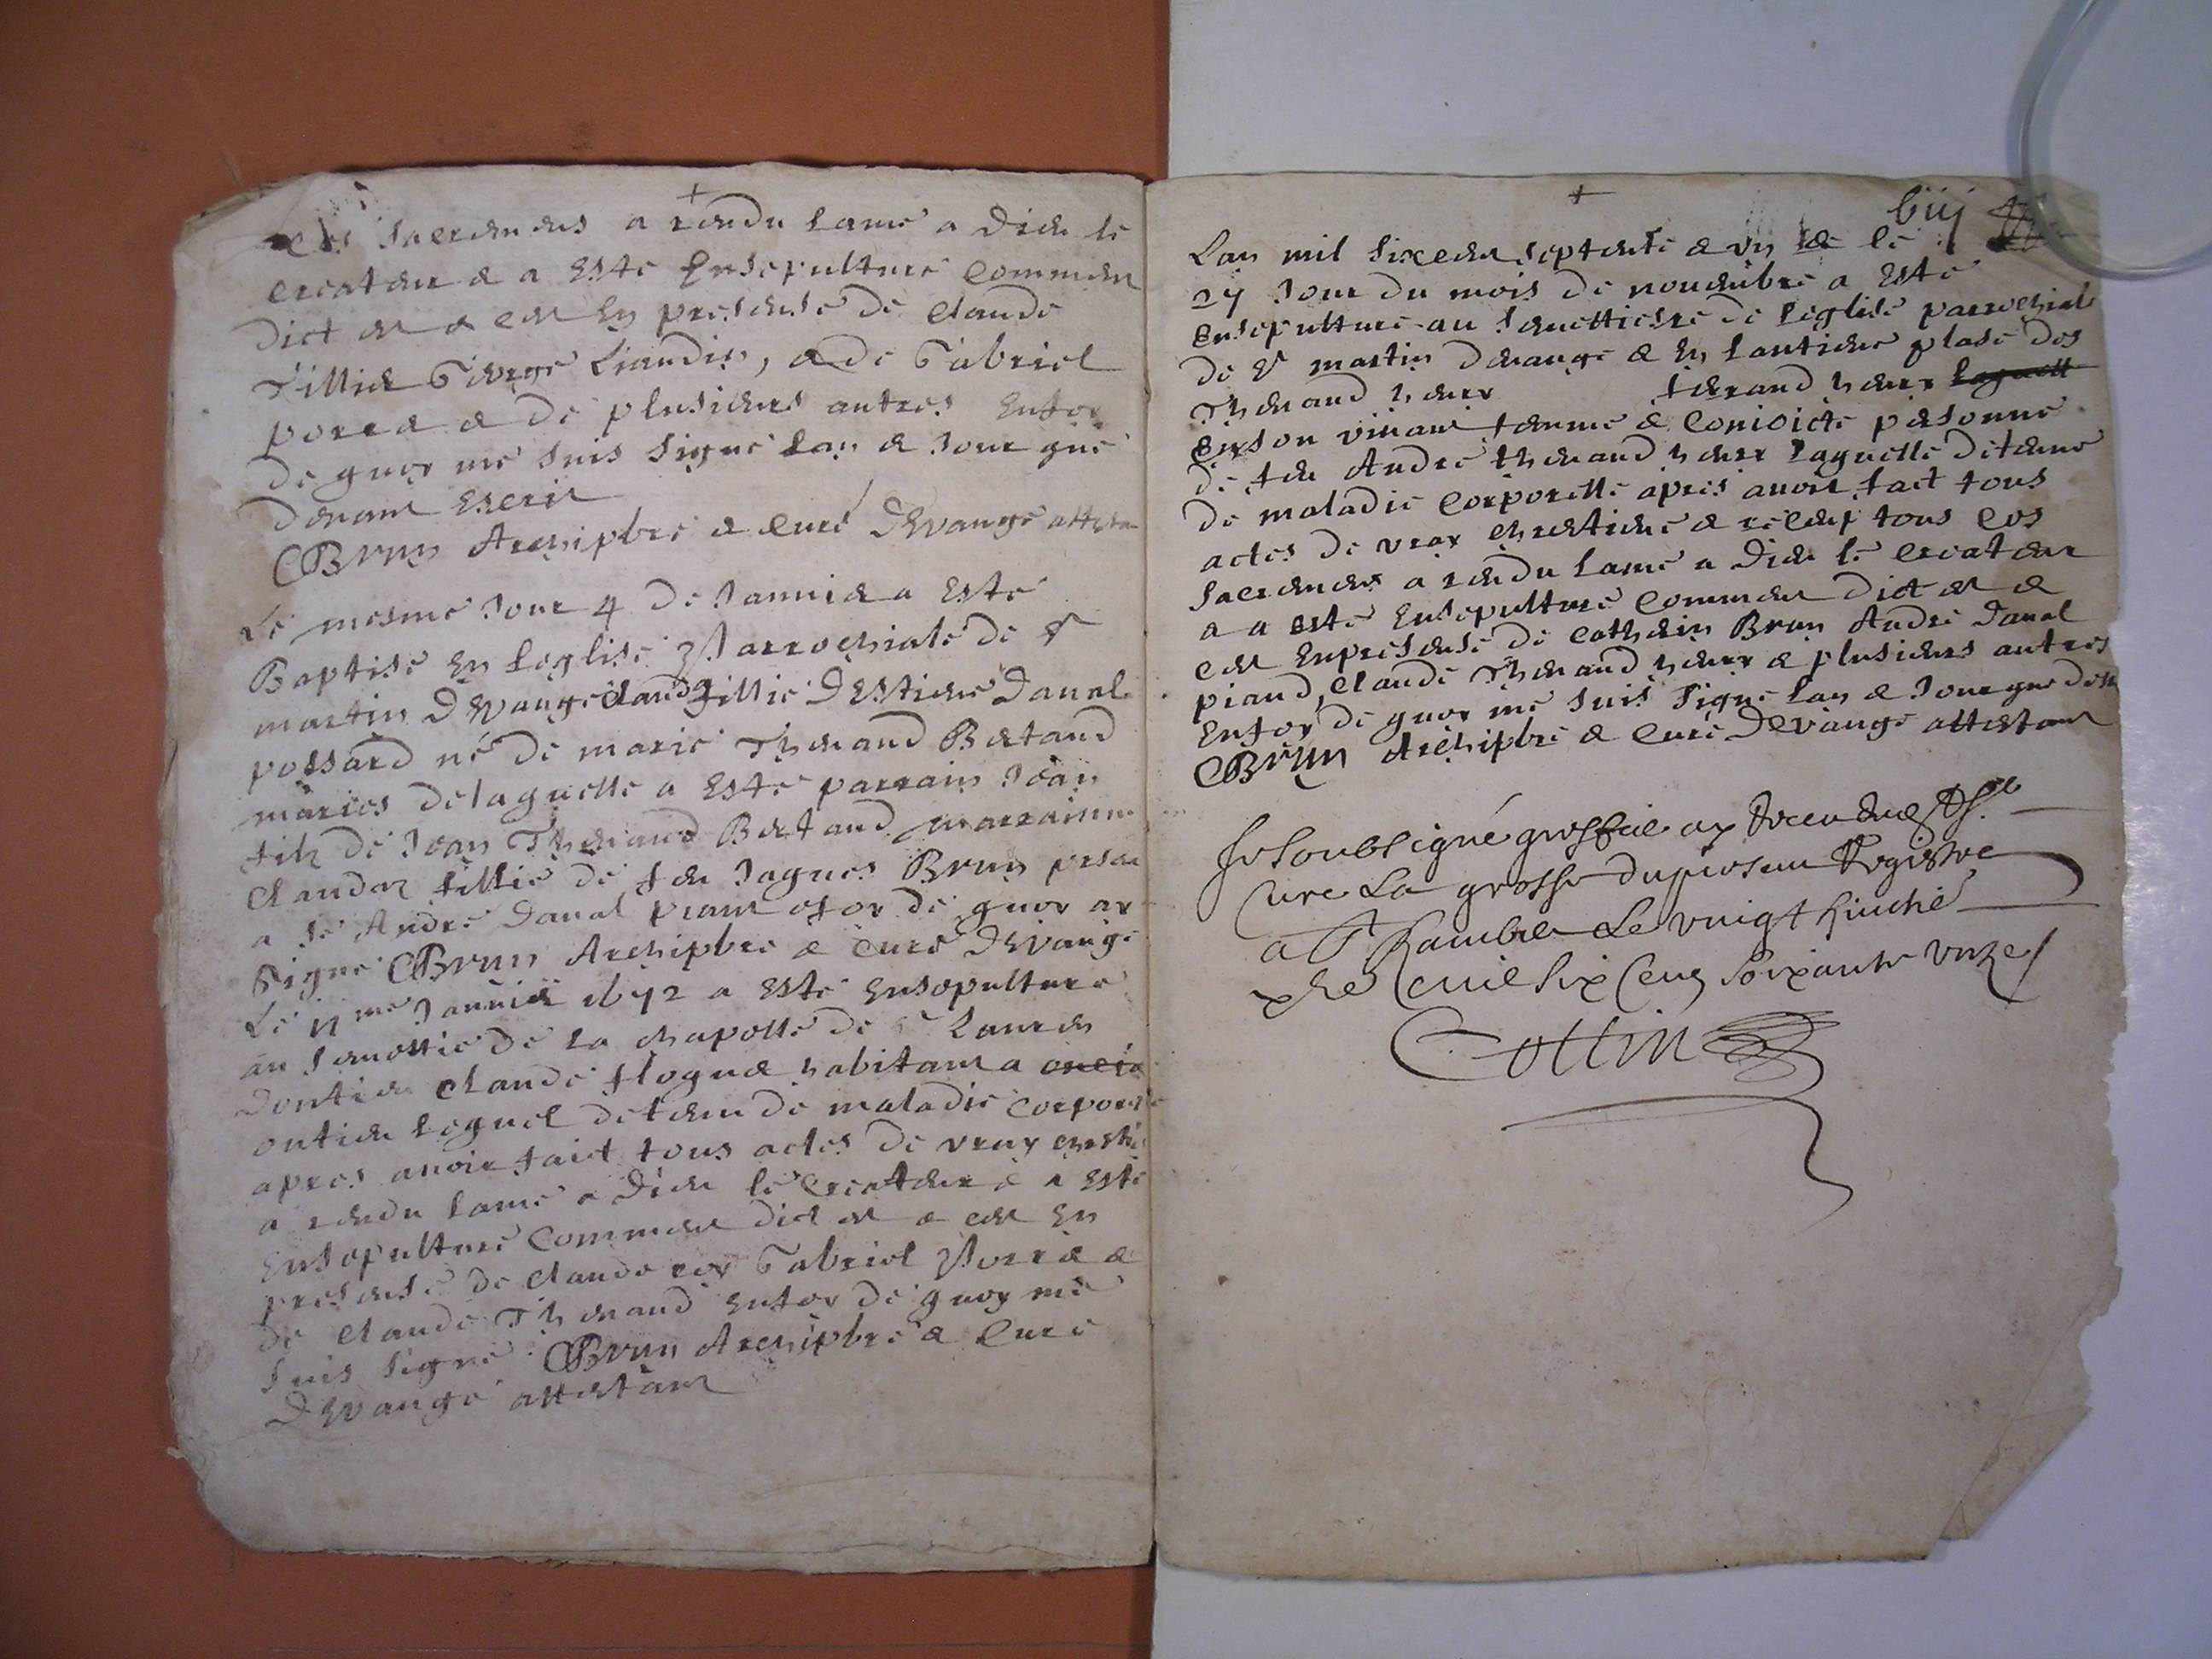 +
ces sacremens a rendu lame a dieu le
createur & a este ensepulture comment
dict est & cest en presense de claude
fillie george Liaudin, & de Gabriel
porret & de plusieurs autres enfoy
de quoy me suis signe lan & jour que
devant escrit
CBrun Archipbre & cure devange attestan
Le mesme jour 4 de Janvier a este
Baptise en leglise Parrochiale de St
martin devange claud fillie destiene daval
possard né de marie Thevand Betand
maries delaquelle a este parrain Jean
filz de Jean Thevand Betand marrainne
claudaz fillie de feu Jaques Brun presan
a se Andre daval piant & foy de quoy ay
signe CBrun Archipbre & cure devange
Le 11me Janvier 1672 a este ensepulture
au semettie de la chapelle de St Lauren
dontiex claude floquet habitant a
ontiex lequel detenu de maladie corporelle
apres avoir fait tous actes de vray chresti
a rendu lame a dieu le createur & a este
ensepulture comment dict est & cest en
presense de claude rey Gabriel Porret &
de claude Thevand enfoy de quoy me
suis signe CBrun Archipbre & cure
devange attestant
+
biij
Lan mil sixcent septente & un le
27 jour du mois de novembre a este
ensepulture au semettiere de leglise parrochiale
de St martin devange & en lantiene plase des
Thevand henry laquelle
en son vivant femme & conioicte personne
de feu Andre thevand henry laquelle detenue
de maladie corporelle apres avoir fact tous
actes de vray chrestiene & receup tous ces
sacremens a rendu lame a dieu le createur
& a este ensepulture comment dict est &
cest enpresense de cathein Brun Andre daval
piand, claude Thevand henry & plusieurs autres
enfoy de quoy me suis signe lan & jour que dess
CBrun Archipbre & cure devange attestant
Je soubsigné greffier ay receu dud Sr
Cure La grosse du present Registre
a Chambery Le vingt
mil six Cens soixante unze
Cottin